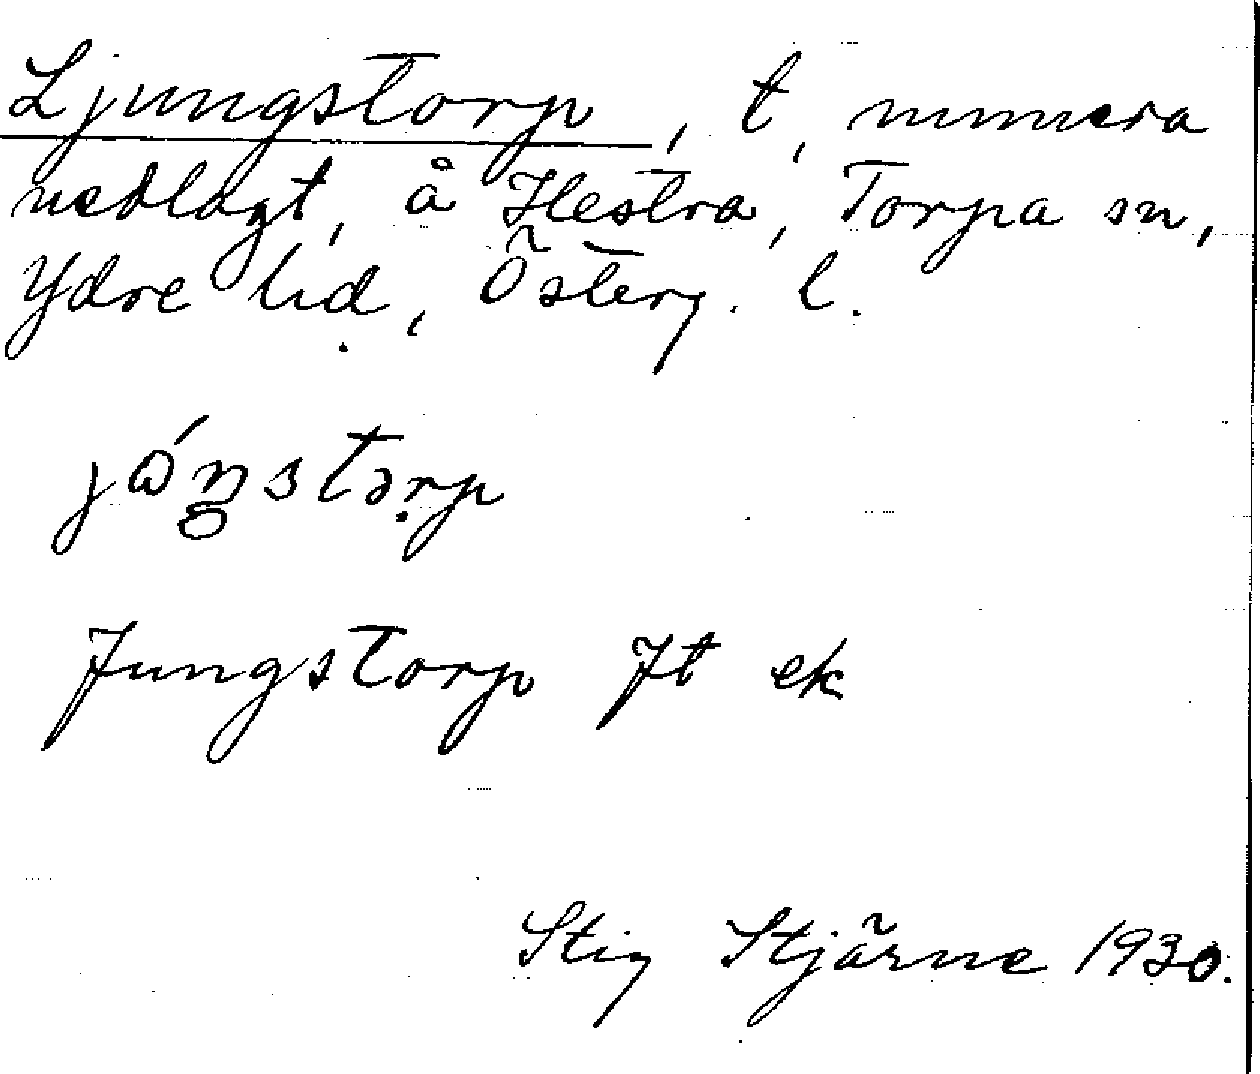 Ljungstorp, t, numera
nedlagt, å Hestra, Torpa sn,
Ydre hd, Österg. l.
Jungstorp Jt ek
Stig Stjärne 1930.